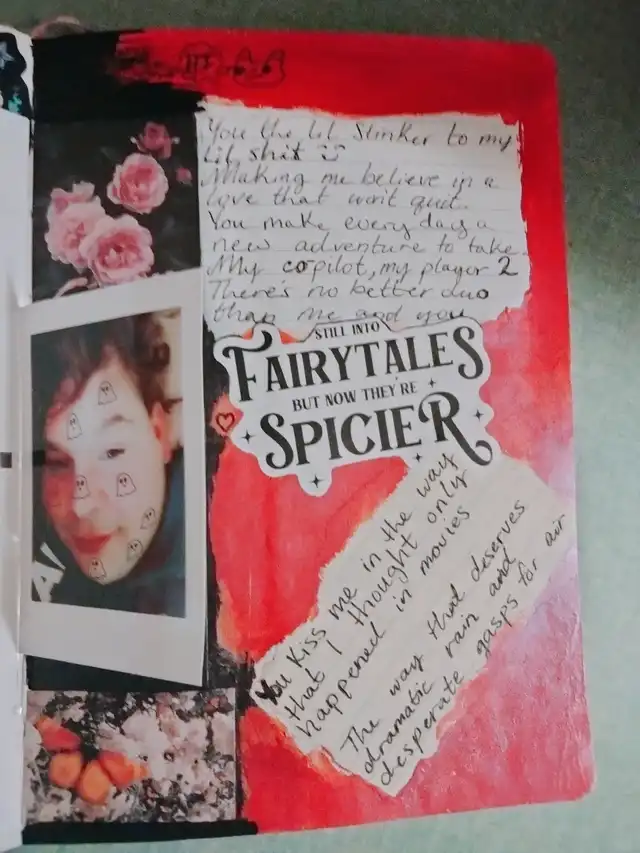 You the lil stinker to my
lil shit
Making me believe in a
love that won't quit
You make every day a
new adventure to take
My copilot, my player 2
There's no better duo
than me and you
STILL INTO
FAIRYTALES
BUT NOW THEY'RE
SPICIER
You kiss me in the way
that I thought only
happened in movies
The way that deserves
dramatic rain and
desperate gasps for air